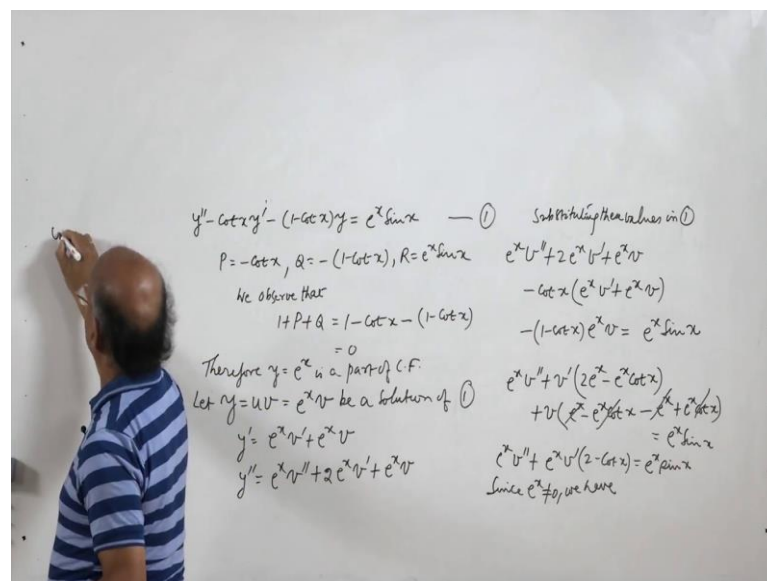 y'' - cot x y' - (1 - cot x) y = e^x sin x — ①
P = -cot x, Q = -(1 - cot x), R = e^x sin x
We observe that
1 + P + Q = 1 - cot x - (1 - cot x)
= 0
Therefore y = e^x is a part of C.F.
Let y = uv = e^x v be a solution of ①
y' = e^x v' + e^x v
y'' = e^x v'' + 2e^x v' + e^x v
Substituting these values in ①
e^x v'' + 2e^x v' + e^x v
- cot x (e^x v' + e^x v)
- (1 - cot x) e^x v = e^x sin x
e^x v'' + v' (2e^x - e^x cot x)
+ v (e^x - e^x cot x - e^x + e^x cot x)
= e^x sin x
e^x v'' + e^x v' (2 - cot x) = e^x sin x
Since e^x ≠ 0, we have